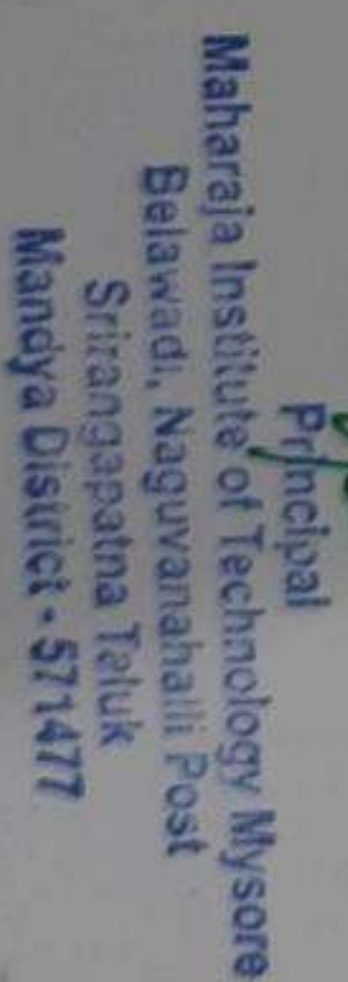 Principal
Maharaja Institute of Technology Mysore
Belawadi, Naguvanahalli Post
Srirangapatna Taluk
Mandya District - 571477